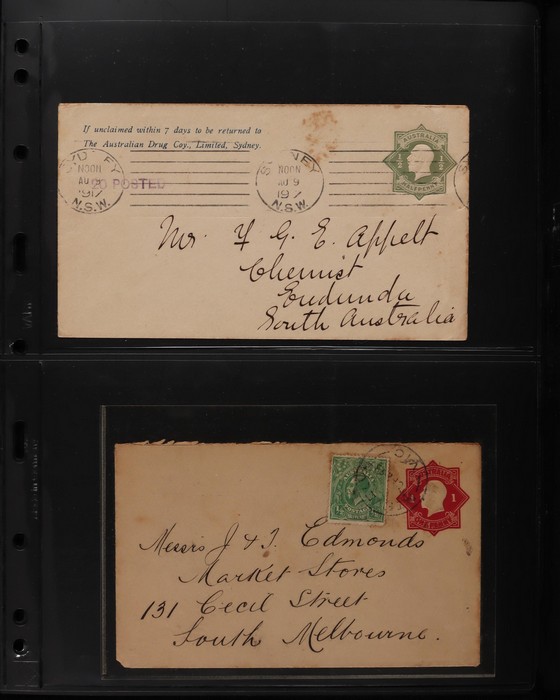 If unclaimed within 7 days to be returned to
The Australian Drug Coy., Limited, Sydney.
SYDNEY
NOON
AU 9
1917
N.S.W.
POSTED
SYDNEY
NOON
AU 9
1917
N.S.W.
AUSTRALIA
HALFPENNY
Mr. F G. E. Appelt
Chemist
Eudunda
South Australia
AUSTRALIA
1
ONE PENNY
Messrs J & T. Edmonds
Market Stores
131 Cecil Street
South Melbourne.